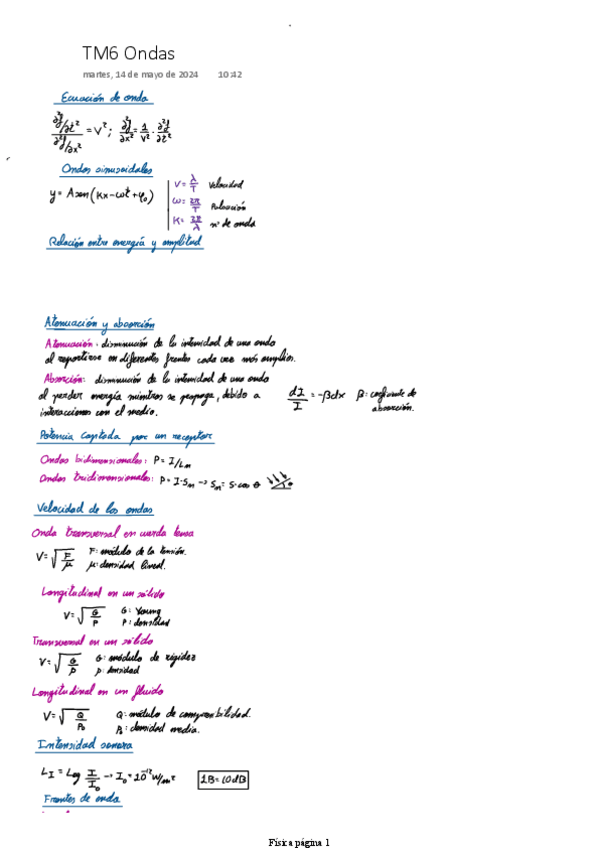 TM6 Ondas
martes, 14 de mayo de 2024 10:42
Ecuación de onda
∂²y/∂t² / ∂²y/∂x² = V² ; ∂²y/∂x² = 1/V² · ∂²y/∂t²
Ondas sinusoidales
y = A sen(Kx-ωt+φ₀)
V = λ/T Velocidad
ω = 2π/T Pulsación
K = 2π/λ nº de onda
Relación entre energía y amplitud
Atenuación y absorción
Atenuación: disminución de la intensidad de una onda
al repartirse en diferentes frentes cada vez más amplios.
Absorción: disminución de la intensidad de una onda
al perder energía mientras se propaga, debido a
interacciones con el medio.
dI/I = -βdx β: coeficiente de
absorción.
Potencia captada por un receptor
Ondas bidimensionales: P = I/Lm
Ondas tridimensionales: P = I·Sm → Sm = S·cos θ
Velocidad de las ondas
Onda transversal en cuerda tensa
V = √F/μ F: módulo de la tensión.
μ: densidad lineal.
Longitudinal en un sólido
V = √G/ρ G: Young
ρ: densidad
Transversal en un sólido
V = √G/ρ G: módulo de rigidez
ρ: densidad
Longitudinal en un fluido
V = √Q/ρ₀ Q: módulo de compresibilidad.
ρ₀: densidad media.
Intensidad sonora
L_I = Log I/I₀ → I₀ = 10⁻¹² W/m² 1B = 10dB
Frentes de onda
Física página 1